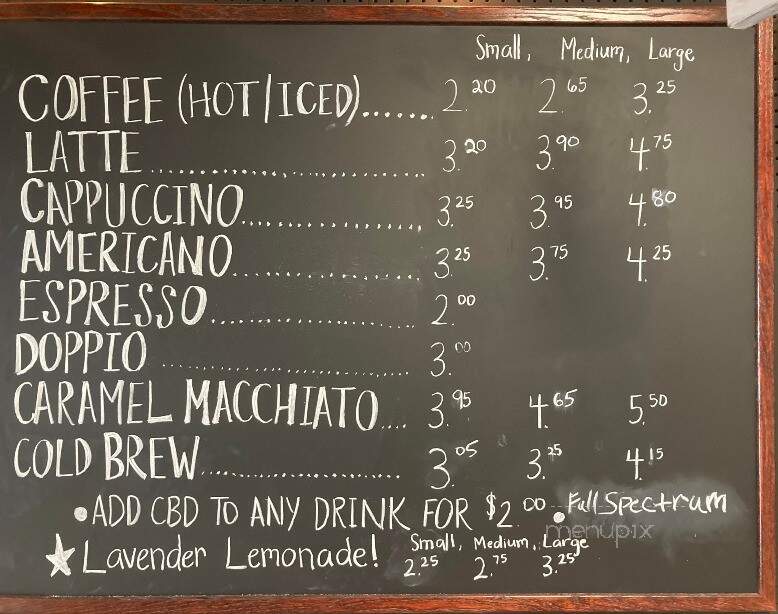 Small, Medium, Large
COFFEE (HOT/ICED)....... 2.20 2.65 3.25
LATTE ............................ 3.20 3.90 4.75
CAPPUCCINO.................... 3.25 3.95 4.80
AMERICANO..................... 3.25 3.75 4.25
ESPRESSO....................... 2.00
DOPPIO .......................... 3.00
CARAMEL MACCHIATO.... 3.95 4.65 5.50
COLD BREW..................... 3.05 3.25 4.15
•ADD CBD TO ANY DRINK FOR $2.00 •Full Spectrum
menupix
★ Lavender Lemonade! Small, Medium, Large
2.25 2.75 3.25